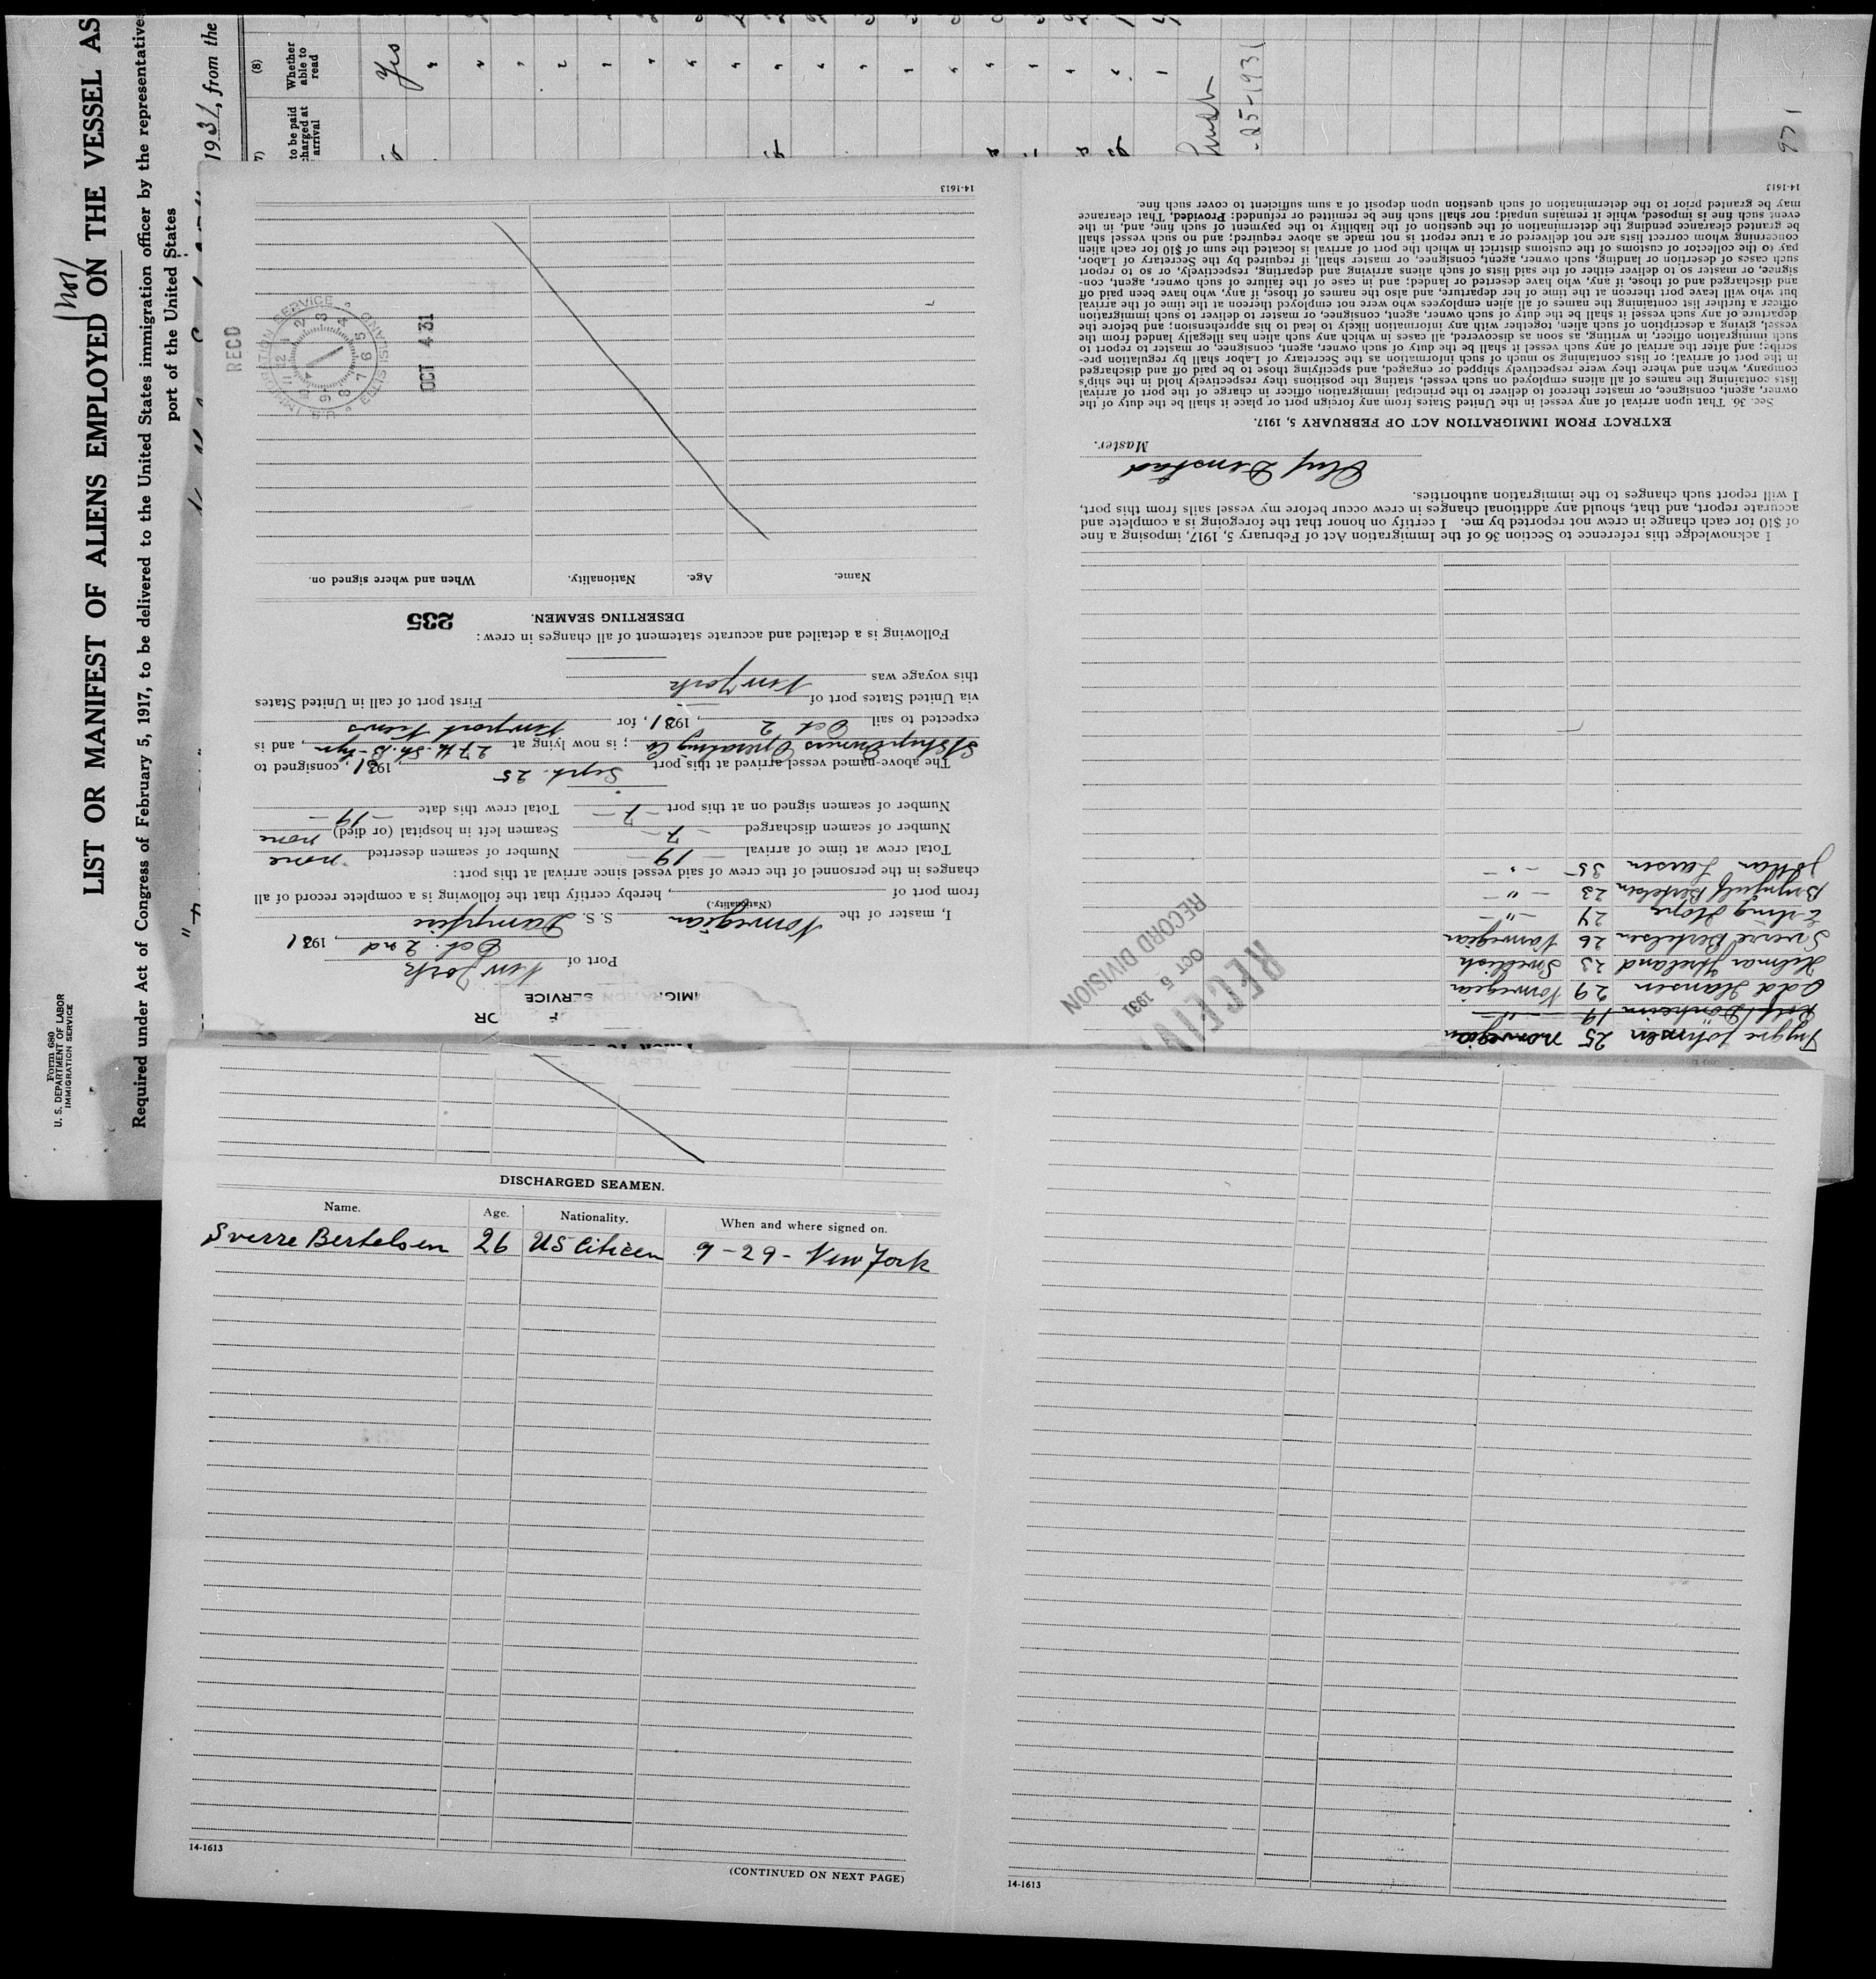 Form 680
U. S. DEPARTMENT OF LABOR
IMMIGRATION SERVICE
LIST OR MANIFEST OF ALIENS EMPLOYED ON THE VESSEL AS
Required under Act of Congress of February 5, 1917, to be delivered to the United States immigration officer by the representatives
port of the United States
1931, from the
(8)
Whether
able to
read
to be paid
arrival
Yes
25-1931
IMMIGRATION SERVICE
Port of New York
Oct. 2nd, 1931
I, master of the Norwegian S. S. Dampfine
(Nationality.)
from port of , hereby certify that the following is a complete record of all
changes in the personnel of the crew of said vessel since arrival at this port:
Total crew at time of arrival 19 Number of seamen deserted none
Number of seamen discharged 7 Seamen left in hospital (or died) none
Number of seamen signed on at this port 7 Total crew this date 19
The above-named vessel arrived at this port Sept. 25, 1931, consigned to
Operating Co ; is now lying at 27th St. B-lyn, and is
expected to sail Oct 2, 1931, for Newport News
via United States port of First port of call in United States
this voyage was New York
Following is a detailed and accurate statement of all changes in crew:
235
DESERTING SEAMEN.
Name. Age. Nationality. When and where signed on.
RECD
OCT 4 31
14-1613
Trygve Johnsen 25 Norwegian
Rolf 19 "
Odd Hansen 29 Norwegian
Hilmar 23 Swedish
Sverre Bertelsen 26 Norwegian
Erling Hope 24 "
Brynjulf Bertelsen 23 "
Johan Larsen 35 "
RECEIV
OCT 5 1931
RECORD DIVISION
I acknowledge this reference to Section 36 of the Immigration Act of February 5, 1917, imposing a fine
of $10 for each change in crew not reported by me. I certify on honor that the foregoing is a complete and
accurate report, and that, should any additional changes in crew occur before my vessel sails from this port,
I will report such changes to the immigration authorities.
Master.
EXTRACT FROM IMMIGRATION ACT OF FEBRUARY 5, 1917.
Sec. 36. That upon arrival of any vessel in the United States from any foreign port or place it shall be the duty of the
owner, agent, consignee, or master thereof to deliver to the principal immigration officer in charge of the port of arrival
lists containing the names of all aliens employed on such vessel, stating the positions they respectively hold in the ship's
company, when and where they were respectively shipped or engaged, and specifying those to be paid off and discharged
in the port of arrival; or lists containing so much of such information as the Secretary of Labor shall by regulation pre-
scribe; and after the arrival of any such vessel it shall be the duty of such owner, agent, consignee, or master to report to
such immigration officer, in writing, as soon as discovered, all cases in which any such alien has illegally landed from the
vessel, giving a description of such alien, together with any information likely to lead to his apprehension; and before the
departure of any such vessel it shall be the duty of such owner, agent, consignee, or master to deliver to such immigration
officer a further list containing the names of all alien employees who were not employed thereon at the time of the arrival
but who will leave port thereon at the time of her departure, and also the names of those, if any, who have been paid off
and discharged and of those, if any, who have deserted or landed; and in case of the failure of such owner, agent, con-
signee, or master so to deliver either of the said lists of such aliens arriving and departing, respectively, or so to report
such cases of desertion or landing, such owner, agent, consignee, or master shall, if required by the Secretary of Labor,
pay to the collector of customs of the customs district in which the port of arrival is located the sum of $10 for each alien
concerning whom correct lists are not delivered or a true report is not made as above required; and no such vessel shall
be granted clearance pending the determination of the question of the liability to the payment of such fine, and, in the
event such fine is imposed, while it remains unpaid; nor shall such fine be remitted or refunded: Provided, That clearance
may be granted prior to the determination of such question upon deposit of a sum sufficient to cover such fine.
14-1613
DISCHARGED SEAMEN.
Name. Age. Nationality. When and where signed on.
Sverre Bertelsen 26 US Citizen 9-29- New York
14-1613
(CONTINUED ON NEXT PAGE)
14-1613